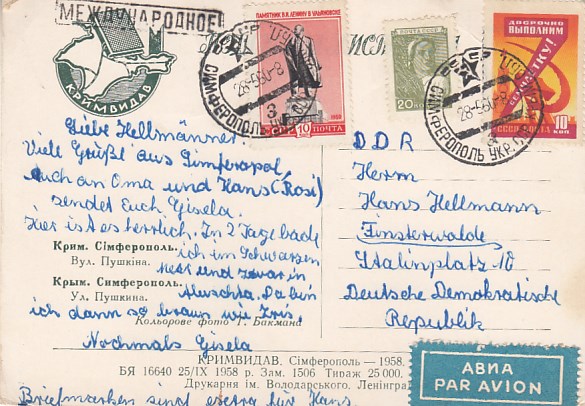 МЕЖДУНАРОДНОЕ
КРИМВИДАВ
ПАМЯТНИК В.И. ЛЕНИНУ В УЛЬЯНОВСКЕ
10 ПОЧТА
1960
ПОЧТА СССР
20 КОП
ДОСРОЧНО
ВЫПОЛНИМ
СЕМИЛЕТКУ!
СССР ПОЧТА 10 КОП
СИМФЕРОПОЛЬ УКР.
28-5 60-8
СИМФЕРОПОЛЬ УКР.
28-5 60-8
Liebe Hellmänner.
Viele Grüße aus Simferopol,
auch an Oma und Hans (Rosi)
sendet Euch Gisela.
Hier ist es herrlich. In 2 Tage bade
ich im Schwarzen
Meer und zwar in
Aluschta. Da bin
ich dann so braun wie Iris.
Nochmals Gisela
Briefmarken sind extra für Hans
Крим. Сімферополь.
Вул. Пушкіна.
Крым. Симферополь.
Ул. Пушкина.
Кольорове фото Г. Бакмана
DDR
Herrn
Hans Hellmann
Finsterwalde
Stalinplatz 10
Deutsche Demokratische
Republik
КРИМВИДАВ. Сімферополь — 1958.
БЯ 16640 25/IX 1958 р. Зам. 1506 Тираж 25 000.
Друкарня ім. Володарського. Ленінград
АВИА
PAR AVION